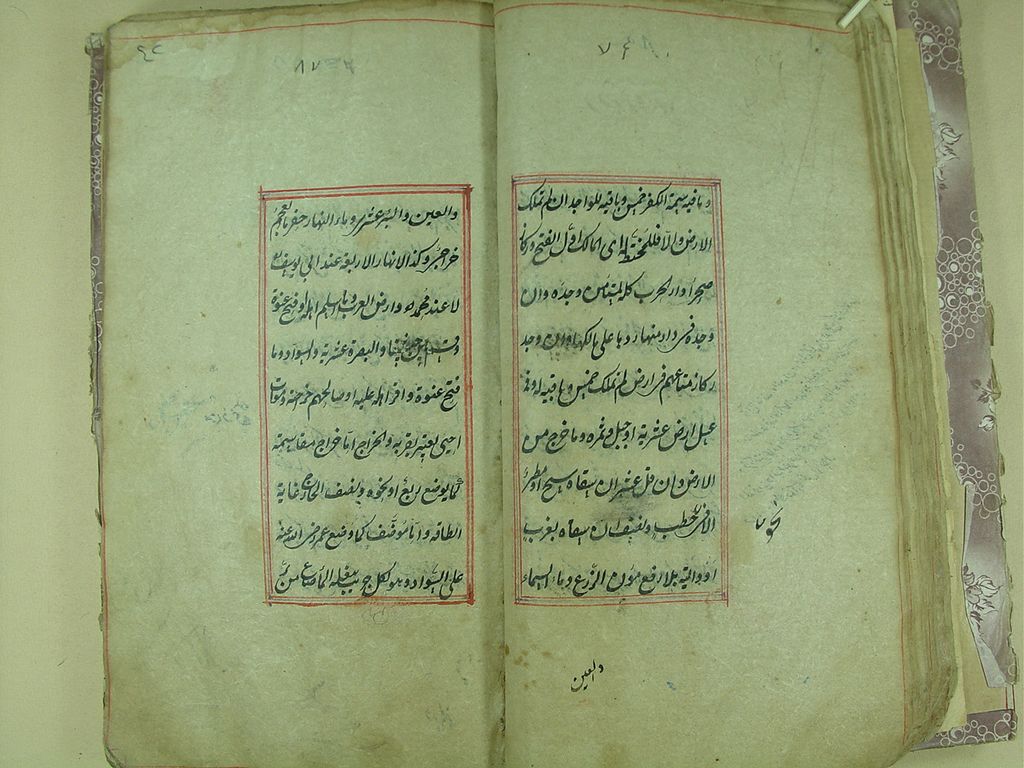 وما فيه سمة الكفر خمس وباقيه للواجد ان لم تملك
الارض والا فللمختط له اى المالك اول الفتح وركاز
صحراء دار الحرب كله لمستأمن وجده وان
وجده فى دار منها رد ما على مالكها وان وجد
ركاز متاعهم فى ارض لم تملك خمس وباقيه له وفى
عسل ارض عشرية او جبل وثمره وما خرج من
الارض وان قل عشر ان سقاه سيح او مطر
الا فى نحو حطب ونصف ان سقاه بغرب
او دالية بلا رفع مؤن الزرع وماء السماء
والعين
٨٧
والعين والبئر عشر وماء انهار حفرها العجم
خراجى وكذا الانهار الاربعة عند ابى يوسف
لا عند محمد وارض العرب وما اسلم اهله او فتح عنوة
وقسم بين جيشنا والبصرة عشرية والسواد وما
فتح عنوة واقر اهله عليه او صالحهم خراجية وموات
احيى يعتبر بقربه والخراج اما خراج مقاسمة
كما يوضع ربع او نحوه ونصف الخارج غاية
الطاقة واما موظف كما وضع عمر رضى الله عنه
على السواد وهو لكل جريب يبلغه الماء صاع من بر